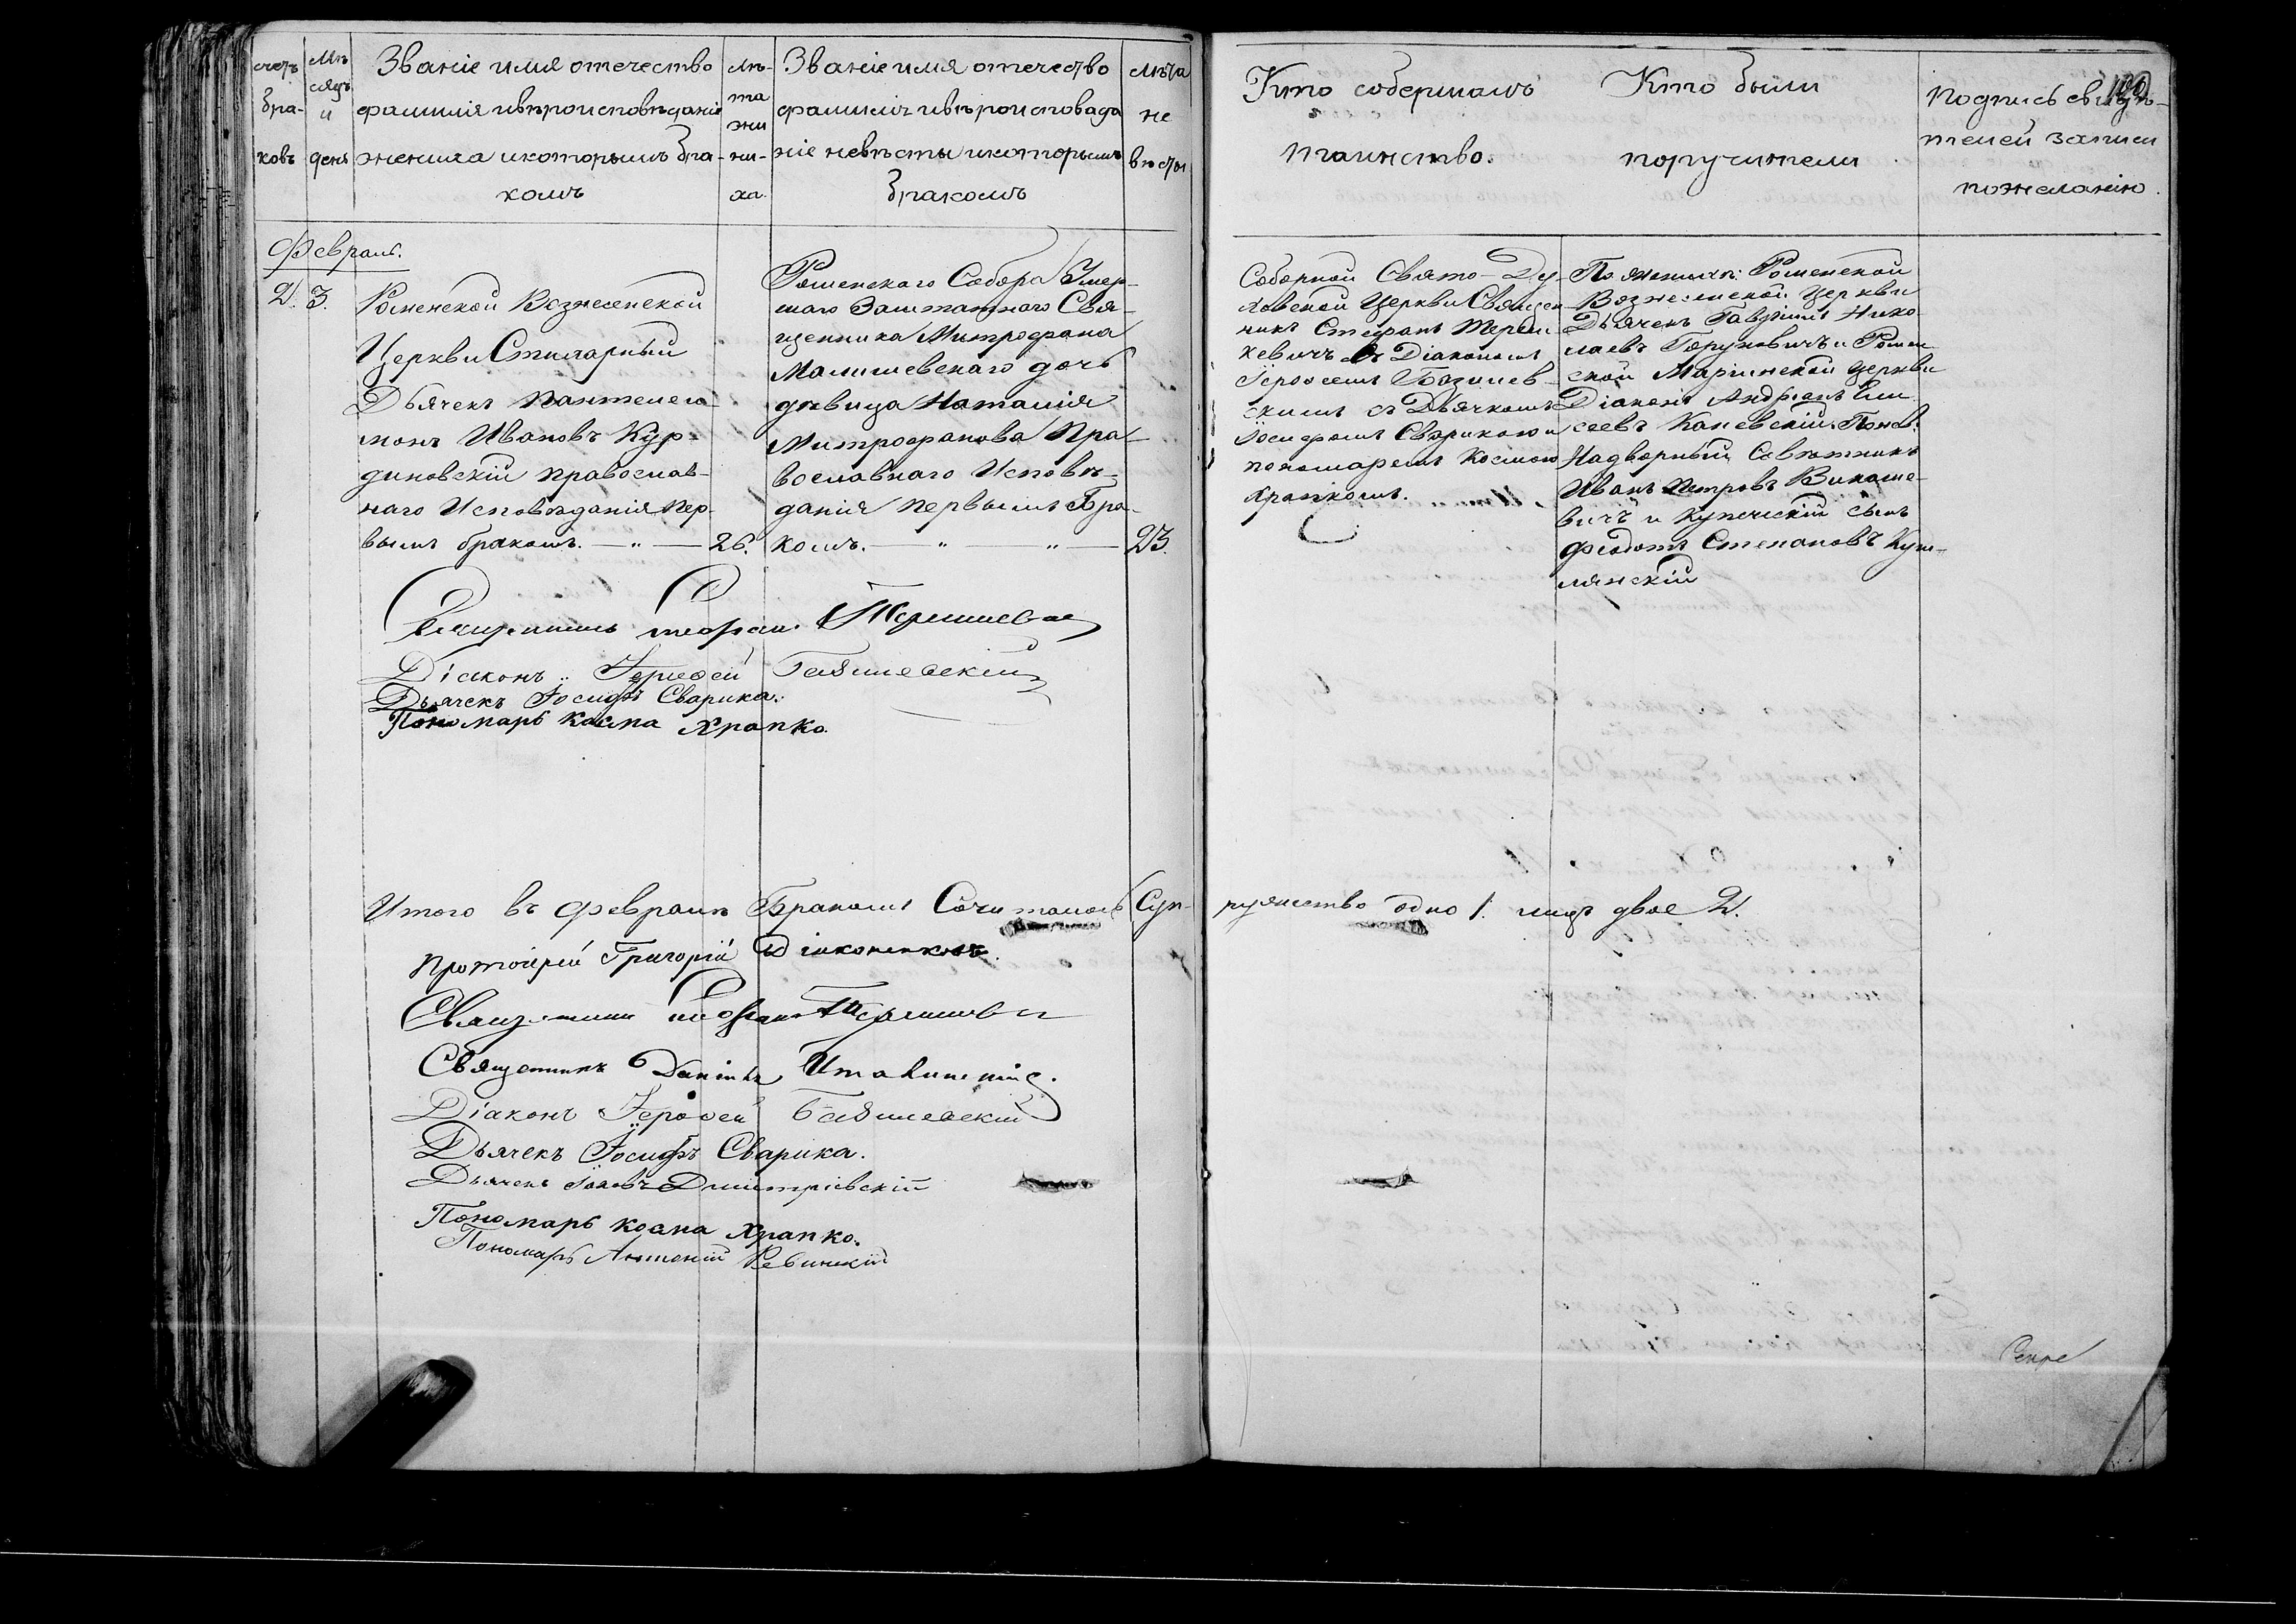 счетъ
бра-
ковъ
Мѣ
сяцъ
и
день
Званіе имя отечество
фамилія ивѣроисповѣданіе
жениха икоторымъ бра-
комъ
лѣ-
та
жи
ни-
ха.
Званіе имя отечество
фамилія ивѣроисповѣда
ніе невѣсты икоторымъ
бракомъ
лѣта
не
вѣсты
Кто совершалъ
таинство.
Кто были
поручители
Подпись свидѣ-
телей записи
пожеланію.
Февраль.
2. 3.
Роменской Вознесенской
Церкви Стихарный
Дьячекъ Пантелеи-
монъ Ивановъ Кур-
диновскій Православ-
наго Исповѣданія Пер-
вымъ бракомъ. — „ — 26.
Роменскаго Собора Умер-
шаго Заштатнаго Свя-
щенника Митрофана
Малишевскаго дочь
дѣвица Наталія
Митрофанова Пра-
вославнаго Исповѣ-
данія Первымъ Бра-
комъ. — „ „ — 23.
Соборной Свято-Ду-
ховской Церкви Священ
никъ Стефанъ
съ Діакономъ
съ Дьячкомъ
Іосифомъ Сварикою и
пономаремъ Космою
Храпкомъ.
По женихѣ: Роменской
Вознесенской Церкви
Дьячекъ Гавріилъ Нико
лаевъ и Ромен
ской Маріинской Церкви
Діаконъ Андрей Ели
сеевъ Каневскій: По нев:
Надворный Совѣтникъ
Иванъ Петровъ
вичъ и Купеческій сынъ
Феодотъ Степановъ Куш-
лянскій
Священникъ Стефанъ
Діаконъ Іероѳей
Дьячекъ Іосифъ Сварика.
Пономарь Косма Храпко.
Итого въ Февралѣ Бракомъ Сочиталось Суп-
ружество одно 1. лицъ двое 2.
Протоіерей Григорій Діаконенковъ.
Священникъ Стефанъ
Священникъ Даніилъ
Діаконъ Іероѳей
Дьячекъ Іосифъ Сварика.
Дьячекъ Іаковъ Дмитріевскій
Пономарь Косма Храпко.
Пономарь Антоній Левицкій